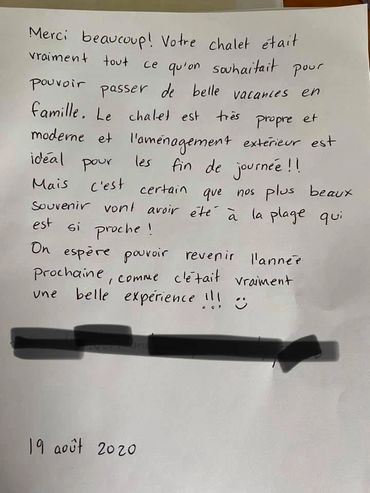 Merci beaucoup! Votre chalet était
vraiment tout ce qu'on souhaitait pour
pouvoir passer de belle vacances en
famille. Le chalet est très propre et
moderne et l'aménagement extérieur est
idéal pour les fin de journée!!
Mais c'est certain que nos plus beaux
souvenir vont avoir été à la plage qui
est si proche!
On espère pouvoir revenir l'année
prochaine, comme c'était vraiment
une belle expérience!!! :)
19 août 2020